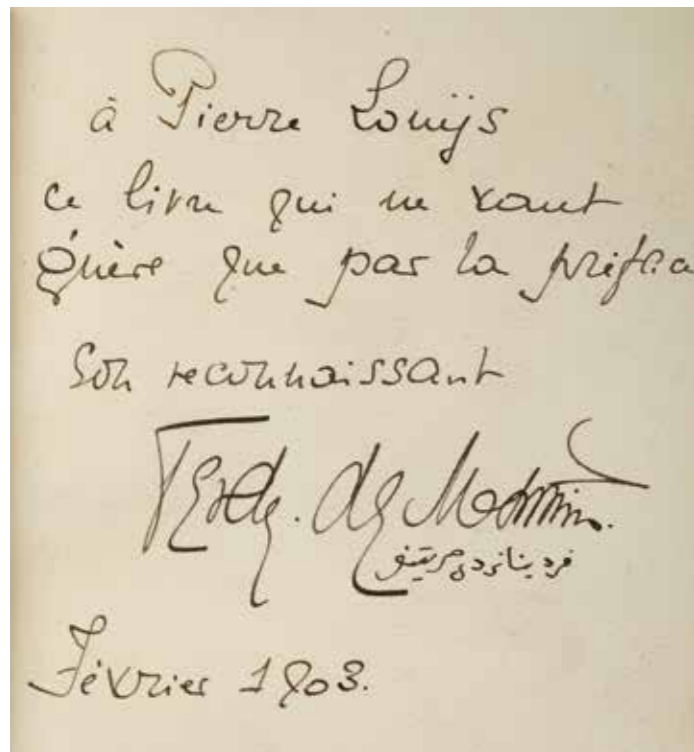 à Pierre Louÿs
ce livre qui ne vaut
guère que par la préface
Son reconnaissant
Ferd. de Martino.
فرديناند دى مرتينو
Février 1903.